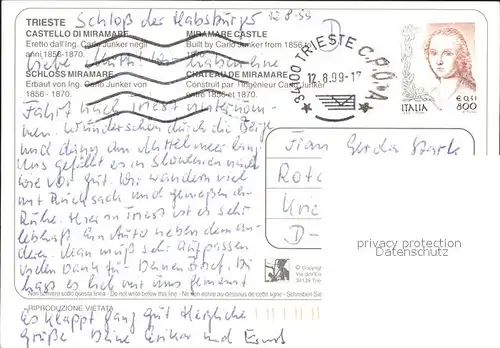 Schloß der Habsburger 12.8.99
TRIESTE
CASTELLO DI MIRAMARE
Eretto dall'ing. Carlo Junker negli
anni 1856-1870.
MIRAMARE CASTLE
Built by Carlo Junker from 1856 to
1870.
SCHLOSS MIRAMARE
Erbaut von Ing. Carlo Junker von
1856 - 1870.
CHATEAU DE MIRAMARE
Construit par l'Ingénieur Carlo Junker
entre 1856 et 1870.
34100 TRIESTE C.P.O.
12.8.99-17
ITALIA
€ 0,41
800
Liebe
Fahrt nach Triest unternom-
men. Wunderschön durch die Berge
und dann am Mittelmeer lang.
Uns gefällt es in Slowenien nach
wie vor gut. Wir wandern viel
mit Rucksack und genießen die
Ruhe. Hier in Triest ist es sehr
lebhaft. Ein Auto neben dem an-
deren. Man muß sehr aufpassen
vielen Dank für Deinen Brief. Du
hast es Dich mit uns gemerkt
Es klappt ganz gut Herzliche
Grüße Deine Erika und Ernst
Frau Gerda Stark
D-
privacy protection
Datenschutz
© Copyright
Via dell'
34139 Trie
Non scrivere sotto questa linea - Do not write below this line - Ne rien écrire au dessous de cette ligne - Schreiben Sie
RIPRODUZIONE VIETATA